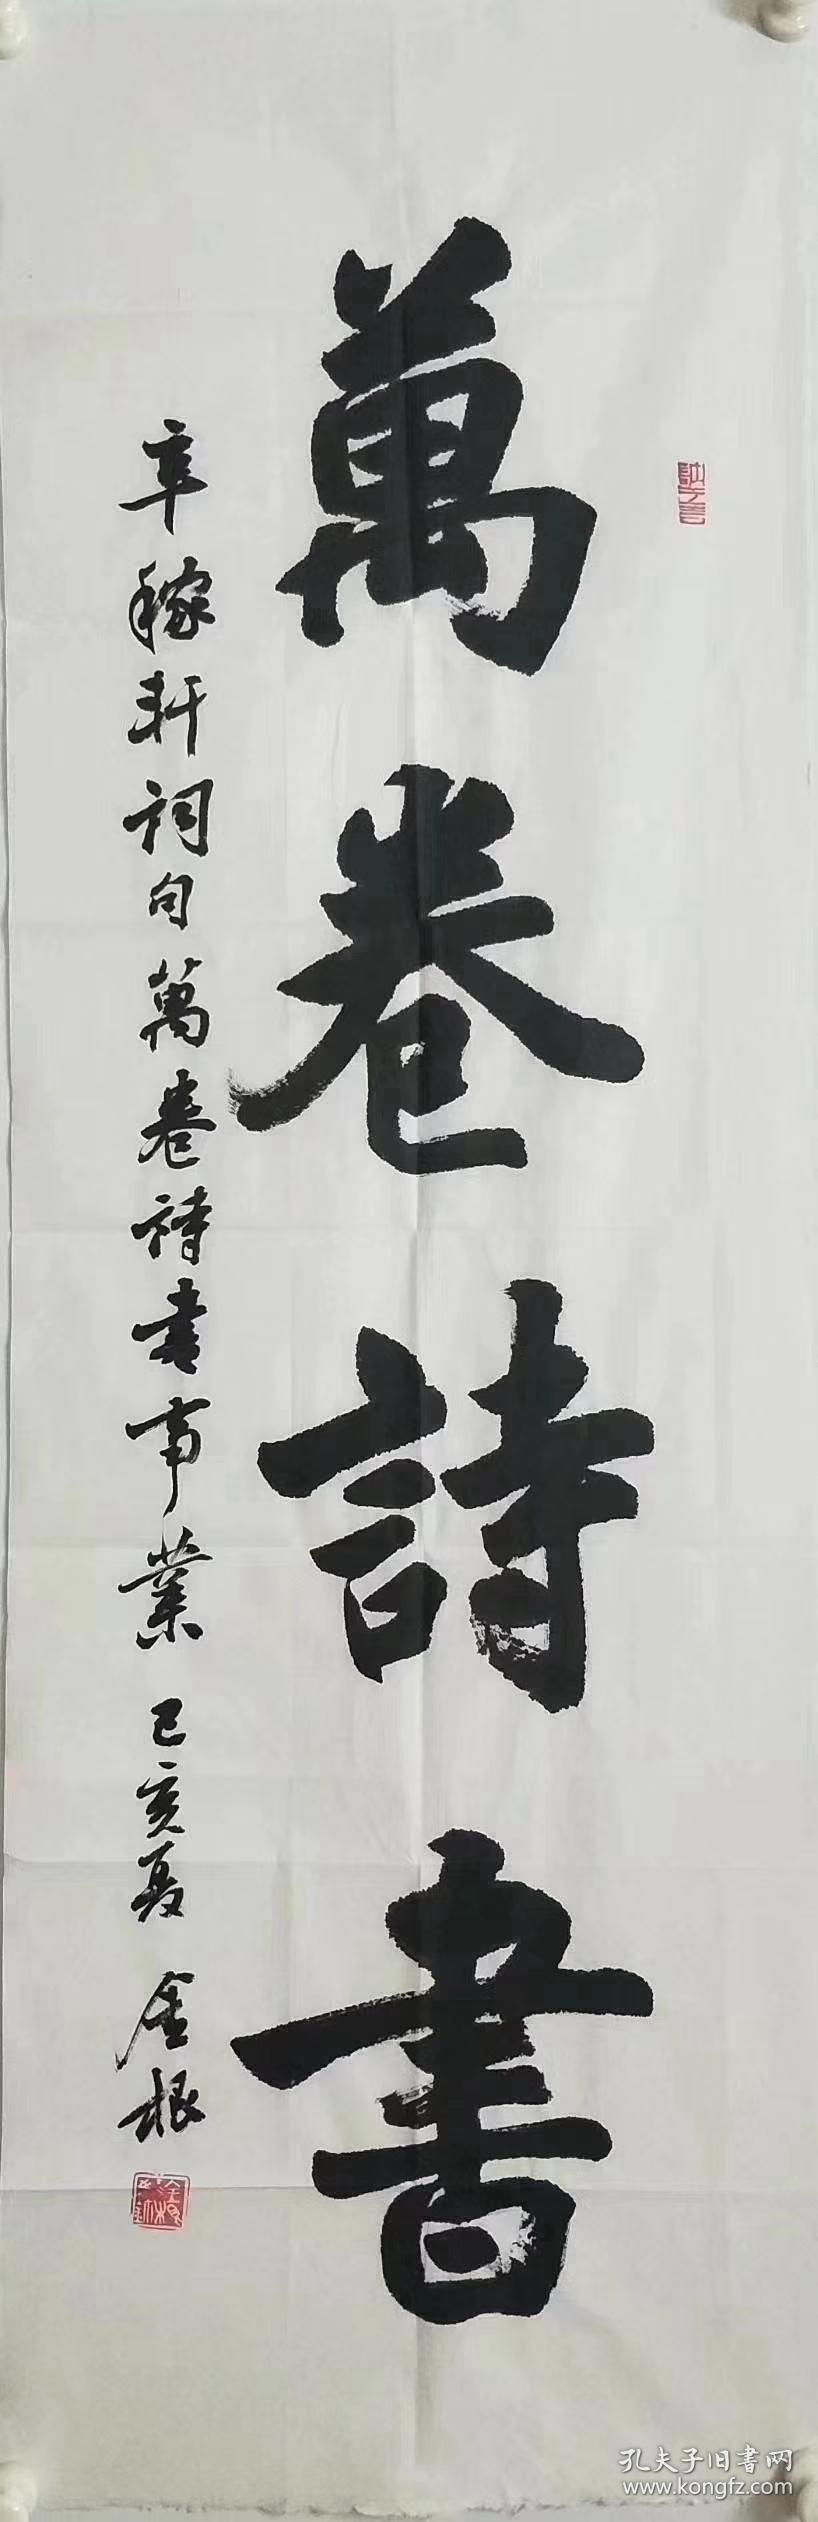 萬卷詩書
辛稼軒词句萬卷詩書事業 己亥夏 金根
孔夫子旧书网
www.kongfz.com